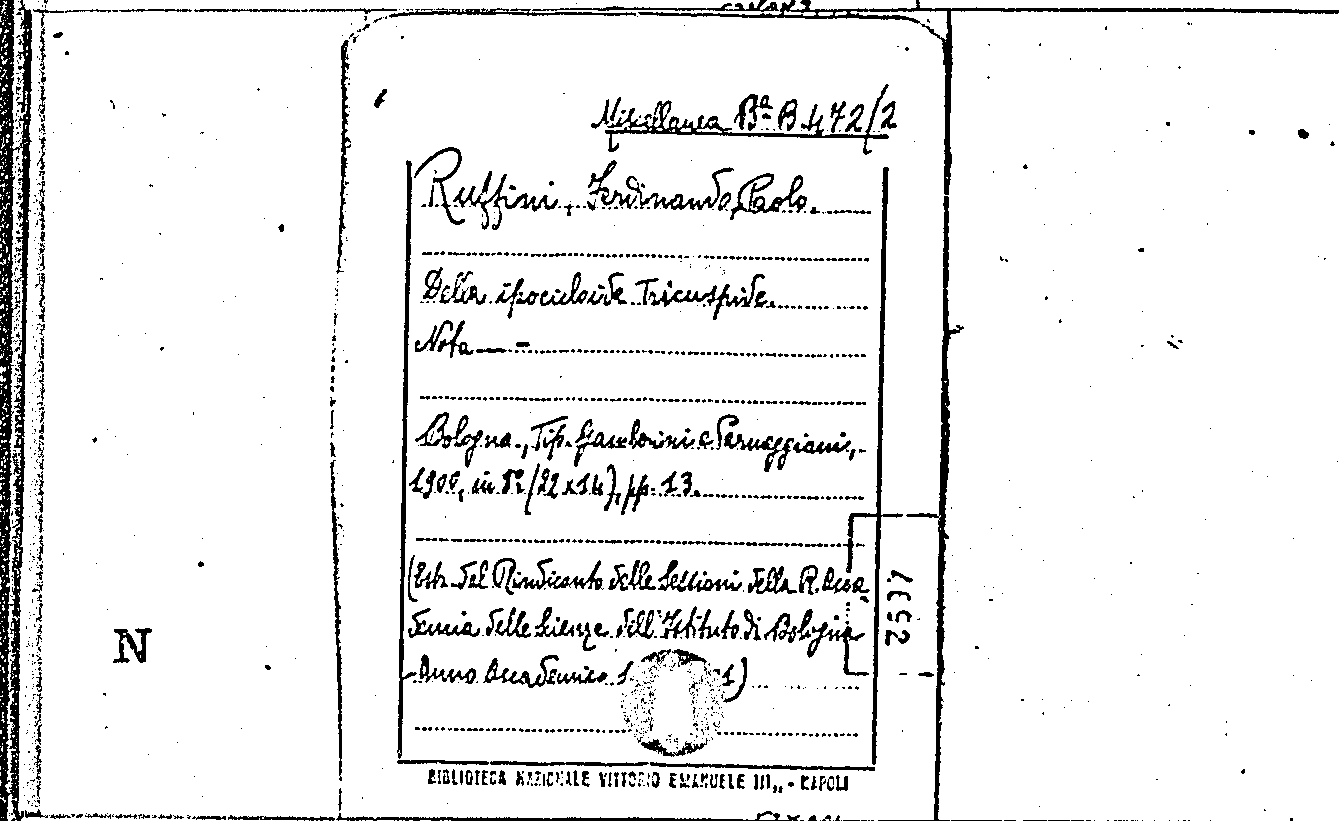 Miscellanea Bª B 472/2
Ruffini, Ferdinando Paolo.
Della ipocicloide Tricuspide.
Nota — -
Bologna., Tip. Gamberini e Parmeggiani,
1900, in 8º (22x14), pp. 13.
(Estr. del Rendiconto delle Sessioni della R. Acca
demia delle Scienze dell'Istituto di Bologna
Anno Accademico 1 1)
2597
N
BIBLIOTECA NAZIONALE VITTORIO EMANUELE III,, - NAPOLI